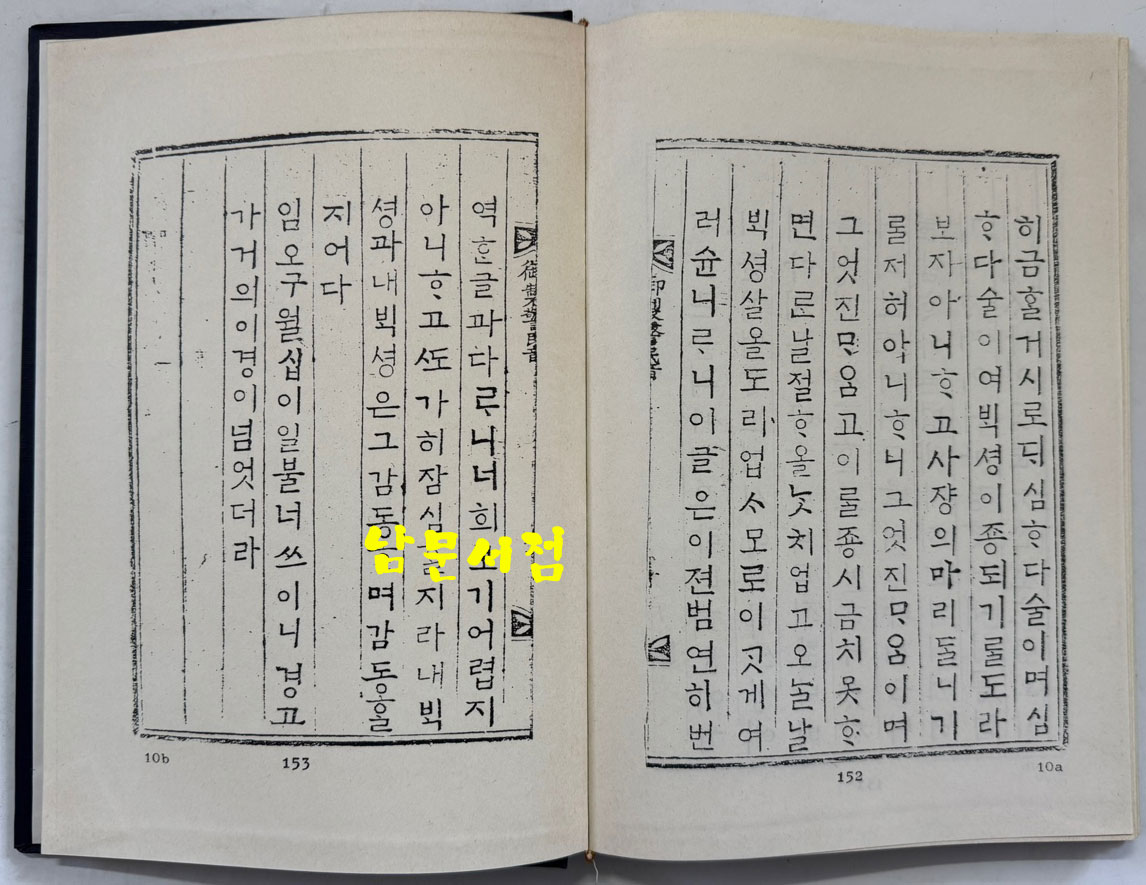 히금홀거시로ᄃᆡ심ᄒᆞ다술이며심
ᄒᆞ다술이여ᄇᆡᆨ셩이죵되기ᄅᆞᆯ도라
보자아니ᄒᆞ고사쟝의마리ᄃᆞᆯ니기
ᄅᆞᆯ저허아니ᄒᆞ니그엇진ᄆᆞᄋᆞᆷ이며
그엇진ᄆᆞᄋᆞᆷ고이ᄅᆞᆯ죵시금치못ᄒᆞ
면다ᄅᆞᆫ날절ᄒᆞ올ᄂᆞᆺ치업고오ᄂᆞᆯ날
ᄇᆡᆨ셩살올도리업ᄉᆞ모로이ᄀᆞᆺ게여
러슌니ᄅᆞ니이글은이젼범연히번
御製警民音
152
10a
御製警民音
역ᄒᆞᆫ글과다ᄅᆞ니너희소기어렵지
아니ᄒᆞ고ᄯᅩ가히잠심지라내ᄇᆡᆨ
셩과내ᄇᆡᆨ셩은그감동며감동홀
지어다
임오구월십이일불너쓰이니경고
가거의이경이넘엇더라
남문서점
10b
153